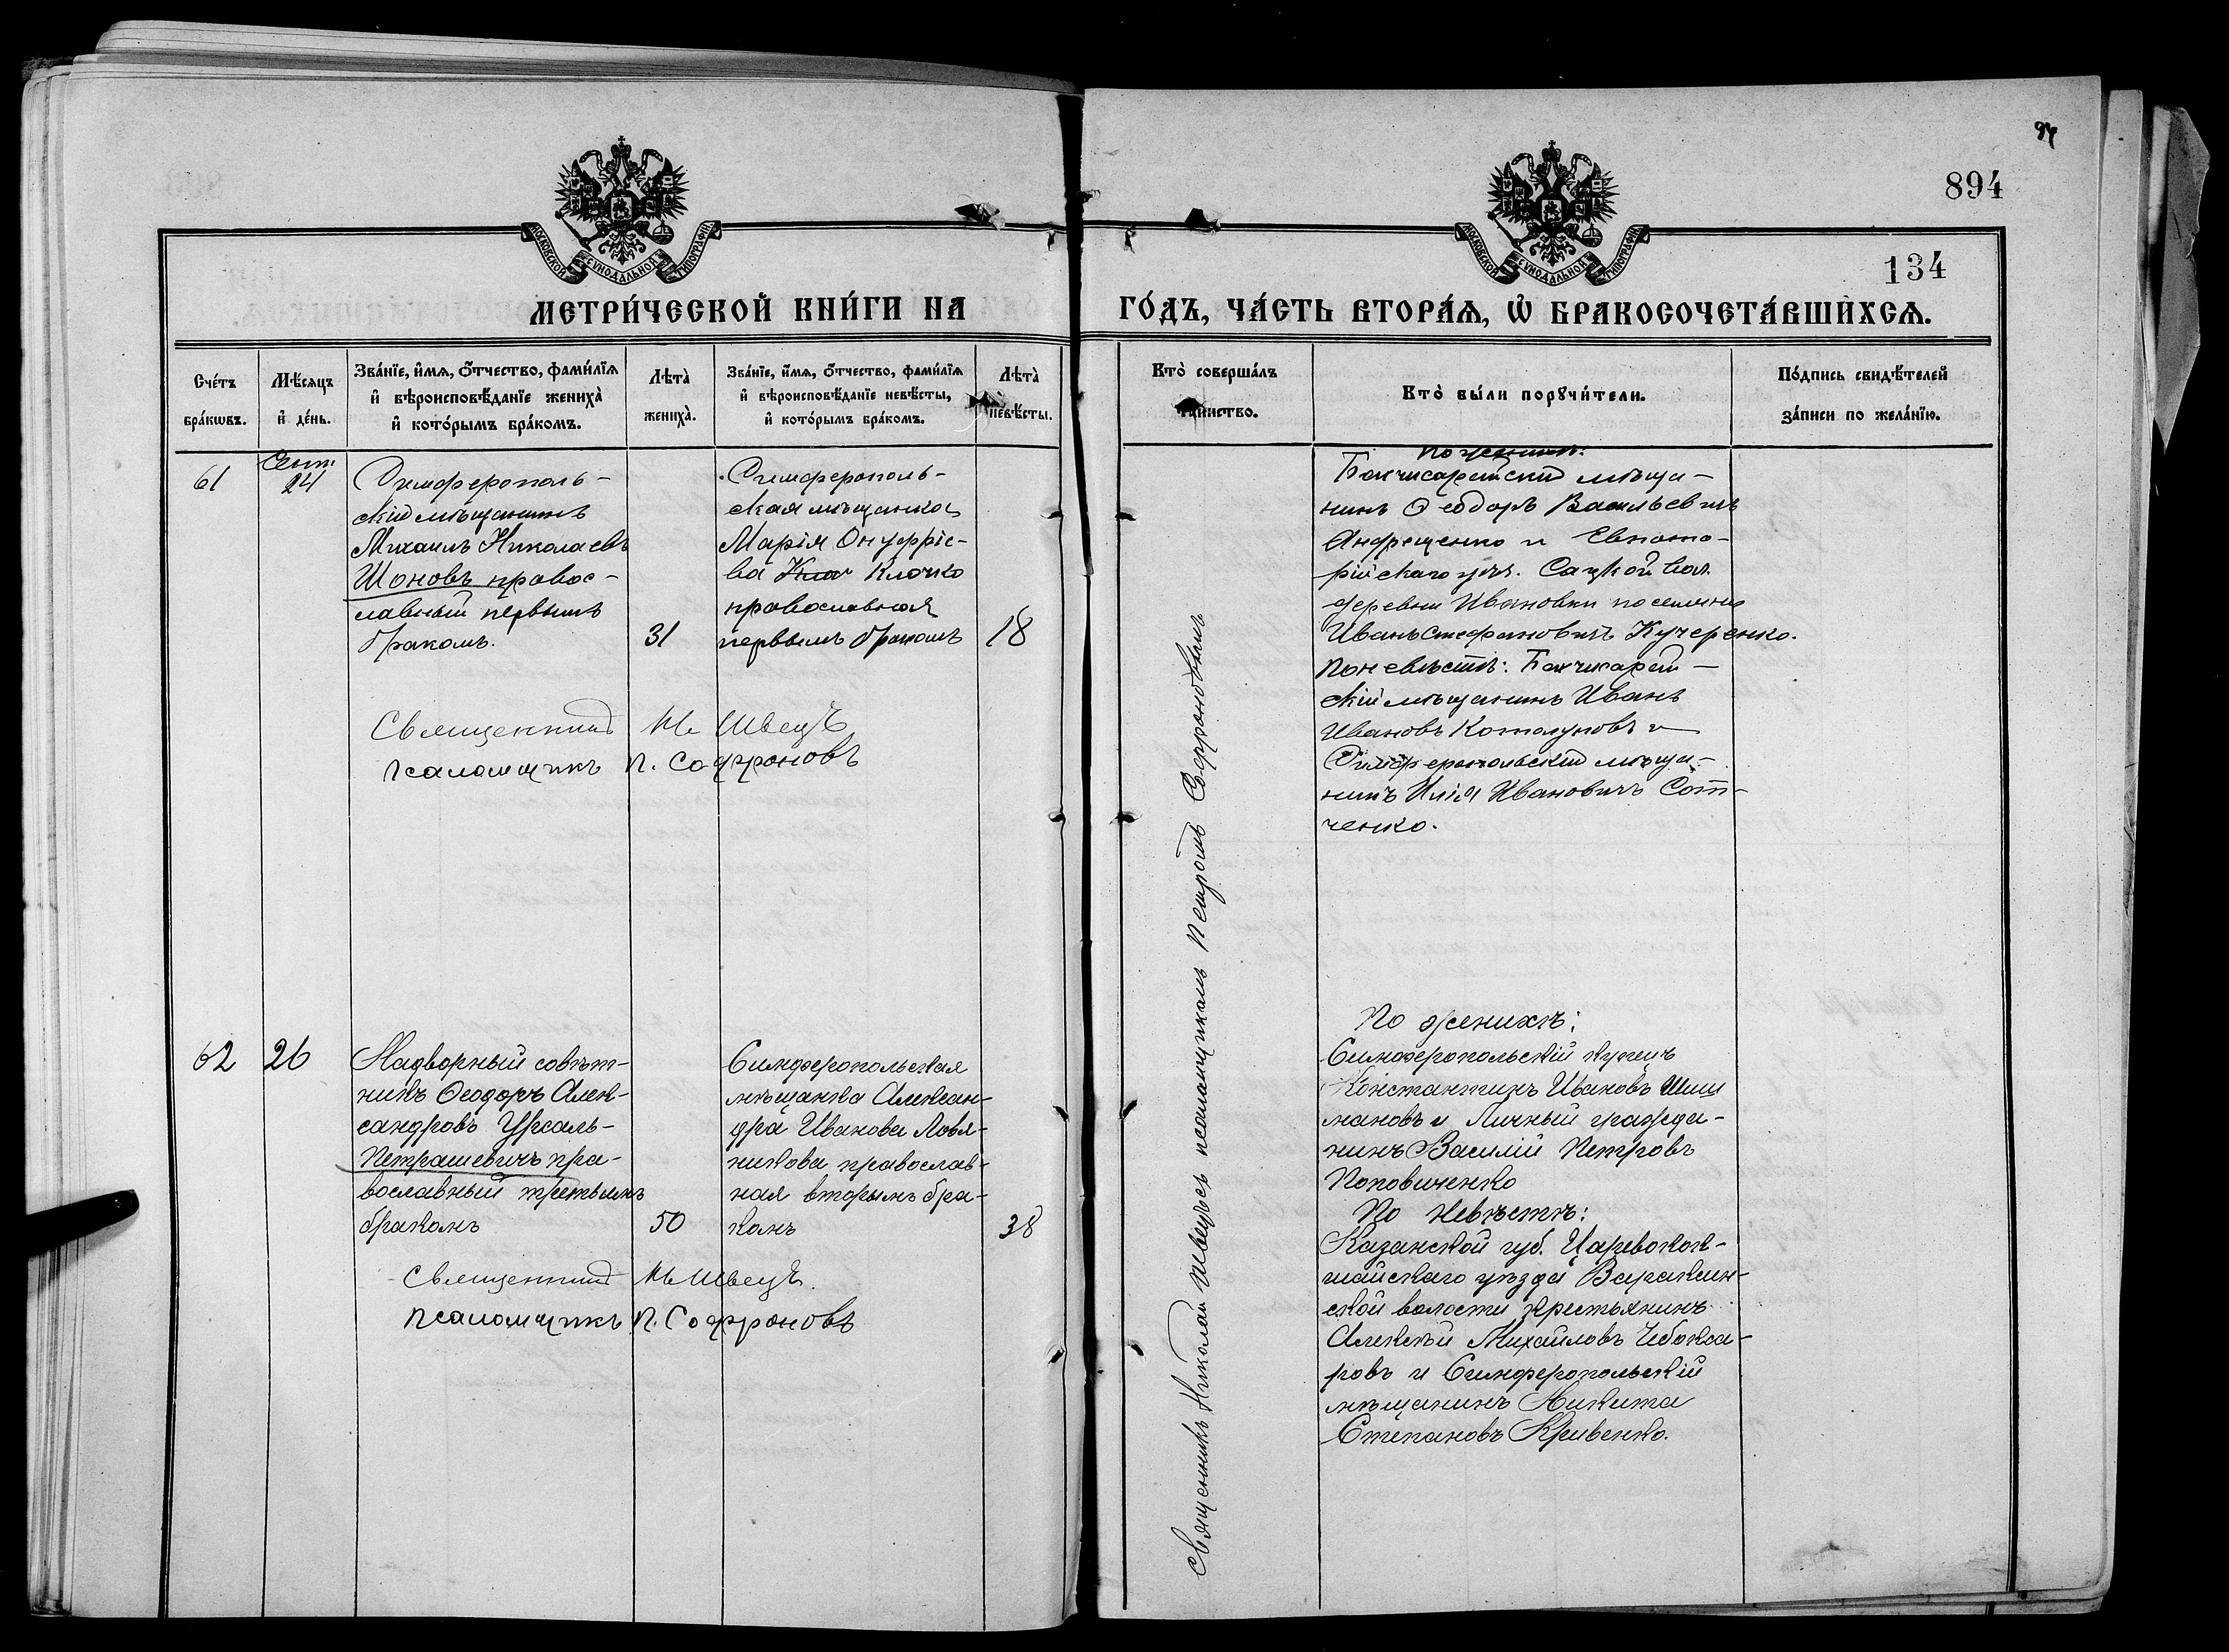 94
894
134
МОСКОВСКОЙ СѴНОДАЛЬНОЙ ТИПОГРАФІИ
МОСКОВСКОЙ СѴНОДАЛЬНОЙ ТИПОГРАФІИ
МЕТРИ́ЧЕСКОЙ КНИ́ГИ НА
ГО́ДЪ, ЧА́СТЬ ВТОРА́Ѧ, Ѡ҆ БРАКОСОЧЕТА́ВШИХСѦ.
Сче́тъ
бра́кѡвъ.
Мѣ́сяцъ
и҆ де́нь.
Зва́нїе, и҆́мя, ѻ҆́тчество, фами́лїя
и҆ вѣроисповѣ́данїе жениха̀
и҆ кото́рымъ бра́комъ.
Лѣта̀
жениха̀.
Зва́нїе, и҆́мя, ѻ҆́тчество, фами́лїя
и҆ вѣроисповѣ́данїе невѣ́сты,
и҆ кото́рымъ бра́комъ.
Лѣта̀
невѣ́сты.
Кто̀ соверша́лъ
та́инство.
Кто̀ бы́ли порꙋчи́тели.
По́дпись свидѣ́телей
за́писи по жела́нїю.
61
Сент.
24
Симферополь-
скій мѣщанинъ
Михаилъ Николаевъ
Шоновъ правос-
лавный первымъ
бракомъ.
31
Симферополь-
ская мѣщанка
Марія Онуфріе-
ва Клочко
православная
первымъ бракомъ
18
Священникъ Н. Швецъ
Псаломщикъ П. Софроновъ
По жениху:
Бахчисарайскій мѣща-
нинъ Ѳеодоръ Васильевичъ
Андрещенко и Евпато-
рійскаго уѣз. Сакской вол.
деревни Ивановки поселянинъ
Иванъ Стефановичъ Кучеренко.
По невѣстѣ: Бахчисарай-
скій мѣщанинъ Иванъ
Ивановъ Котолуповъ и
Симферопольскій мѣща-
нинъ Илія Ивановичъ Сот-
ченко.
62
26
Надворный совѣт-
никъ Ѳеодоръ Алек-
сандровъ Урсалъ-
Петрашевичъ пра-
вославный третьимъ
бракомъ
50
Симферопольская
мѣщанка Алексан-
дра Иванова Ловя-
никова православ-
ная вторымъ бра-
комъ
38
Священникъ Н. Швецъ.
Псаломщикъ П. Софроновъ
По женихѣ:
Симферопольскій купецъ
Константинъ Ивановъ Шиш
мановъ и Личный гражда-
нинъ Василій Петровъ
Поповиченко
По невѣстѣ:
Казанской губ. Царевокок-
шайскаго уѣзда Вараксин-
ской волости крестьянинъ
Алексѣй Михайловъ Чебокса-
ровъ и Симферопольскій
мѣщанинъ Никита
Степановъ Кривенко.
Священникъ Николай Швецъ съ псаломщикомъ Петромъ Софроновымъ